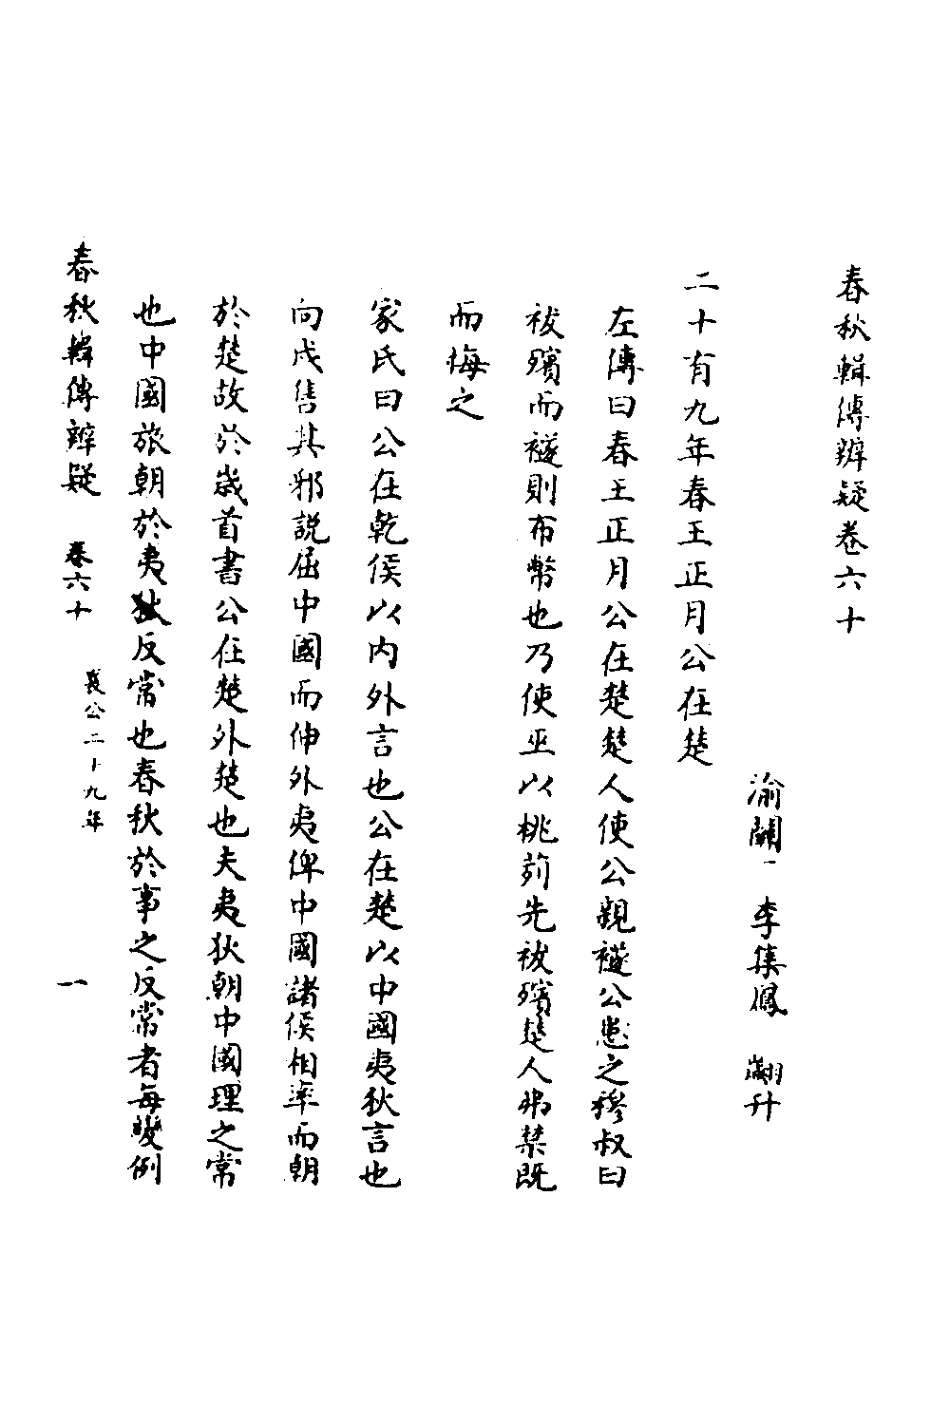 春秋輯傳辨疑卷六十
渝關 李集鳳 翽升
二十有九年春王正月公在楚
左傳曰春王正月公在楚楚人使公親襚公患之穆叔曰
祓殯而襚則布幣也乃使巫以桃茢先祓殯楚人弗禁既
而悔之
家氏曰公在乾侯以内外言也公在楚以中國夷狄言也
向戌售其邪説屈中國而伸外夷俾中國諸侯相率而朝
於楚故於歲首書公在楚外楚也夫夷狄朝中國理之常
也中國旅朝於夷狄反常也春秋於事之反常者每變例
春秋輯傳辨疑 卷六十 襄公二十九年 一